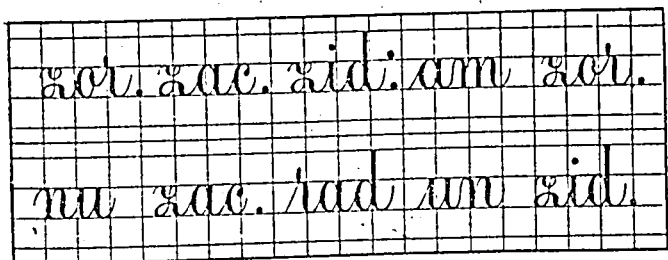 zor. zac. zid. am zor.
nu zac. rad un zid.